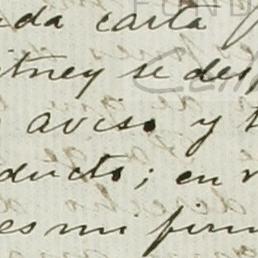 da carta
itney se des
aviso y t
ducto; en
es mi firm